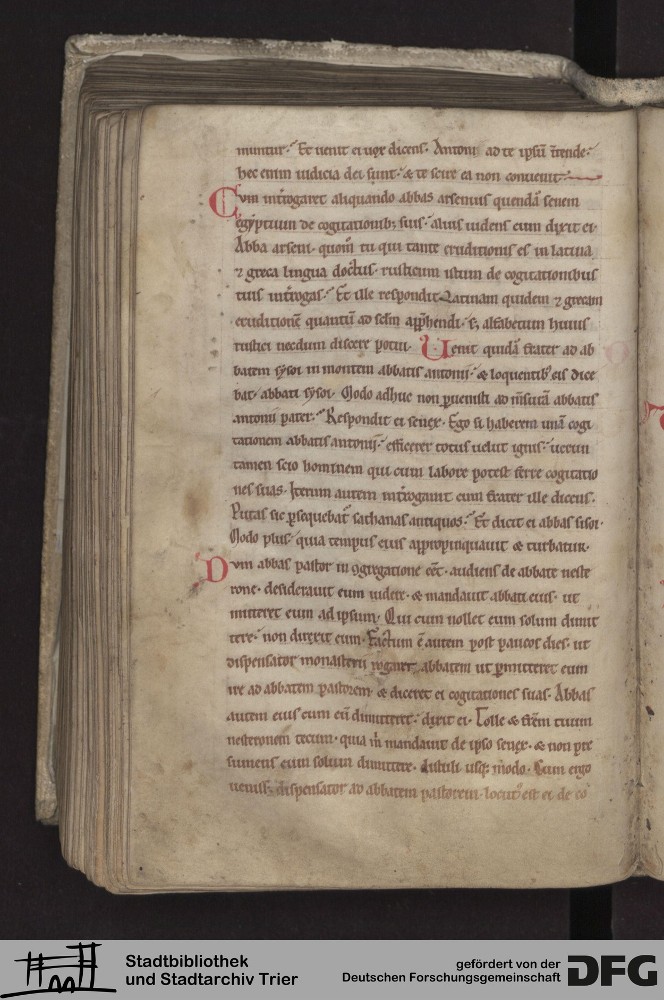 muntur. Et uenit ei uox dicens. Antoni ad te ipsū ītende.
hec enim iudicia dei sunt. & te scire ea non conuenit.
Cum int̄rogaret aliquando abbas arsenius quendā senem
egyptium de cogitationib; suis. alius uidens eum dixit ei.
Abba arseni. quom̄ tu qui tante eruditionis es in latina
⁊ greca lingua doctus. rusticum istum de cogitationibus
tuis int̄rogas. Et ille respondit. Latinam quidem ⁊ grecam
eruditionē quantū ad sclm̄ app̄hendi. s; alfabetum huius
rustici necdum discere potui. Uenit quidā frater ad ab
batem sysoi in montem abbatis antonii. & loquentib; eis dice
bat. abbati sysoi. Modo adhuc non ꝑuenisti ad m̄surā abbatis
antonii pater. Respondit ei senex. Ego si haberem unā cogi
tationem abbatis antonii. efficerer totus uelut ignis. uerun
tamen scio hominem qui cum labore potest ferre cogitatio
nes suas. Iterum autem int̄rogauit eum frater ille dicens.
Putas sic ꝑsequebat̄ sathanas antiquos. Et dicit ei abbas sisoi.
Modo plus. quia tempus eius appropinquauit & turbatur.
Dum abbas pastor in ꝯgregatione eēt. audiens de abbate neste
rone. desiderauit eum uidere. & mandauit abbati eius. ut
mitteret eum ad ipsum. Qui cum nollet eum solum dimit
tere. non direxit eum. Factum ē autem post paucos dies. ut
dispensator monasterii rogaret abbatem ut ꝑmitteret eum
ire ad abbatem pastorem. & diceret ei cogitationes suas. Abbas
autem eius cum eū dimitteret. dixit ei. Tolle & fr̄em tuum
nesteronem tecum. quia m̄ mandauit de ipso senex. & non p̄re
sumens eum solum dimittere. distuli usq; modo. Cum ergo
uenisset dispensator ad abbatem pastorem. locut᷒ est ei de co
Stadtbibliothek
und Stadtarchiv Trier
gefördert von der
Deutschen Forschungsgemeinschaft
DFG